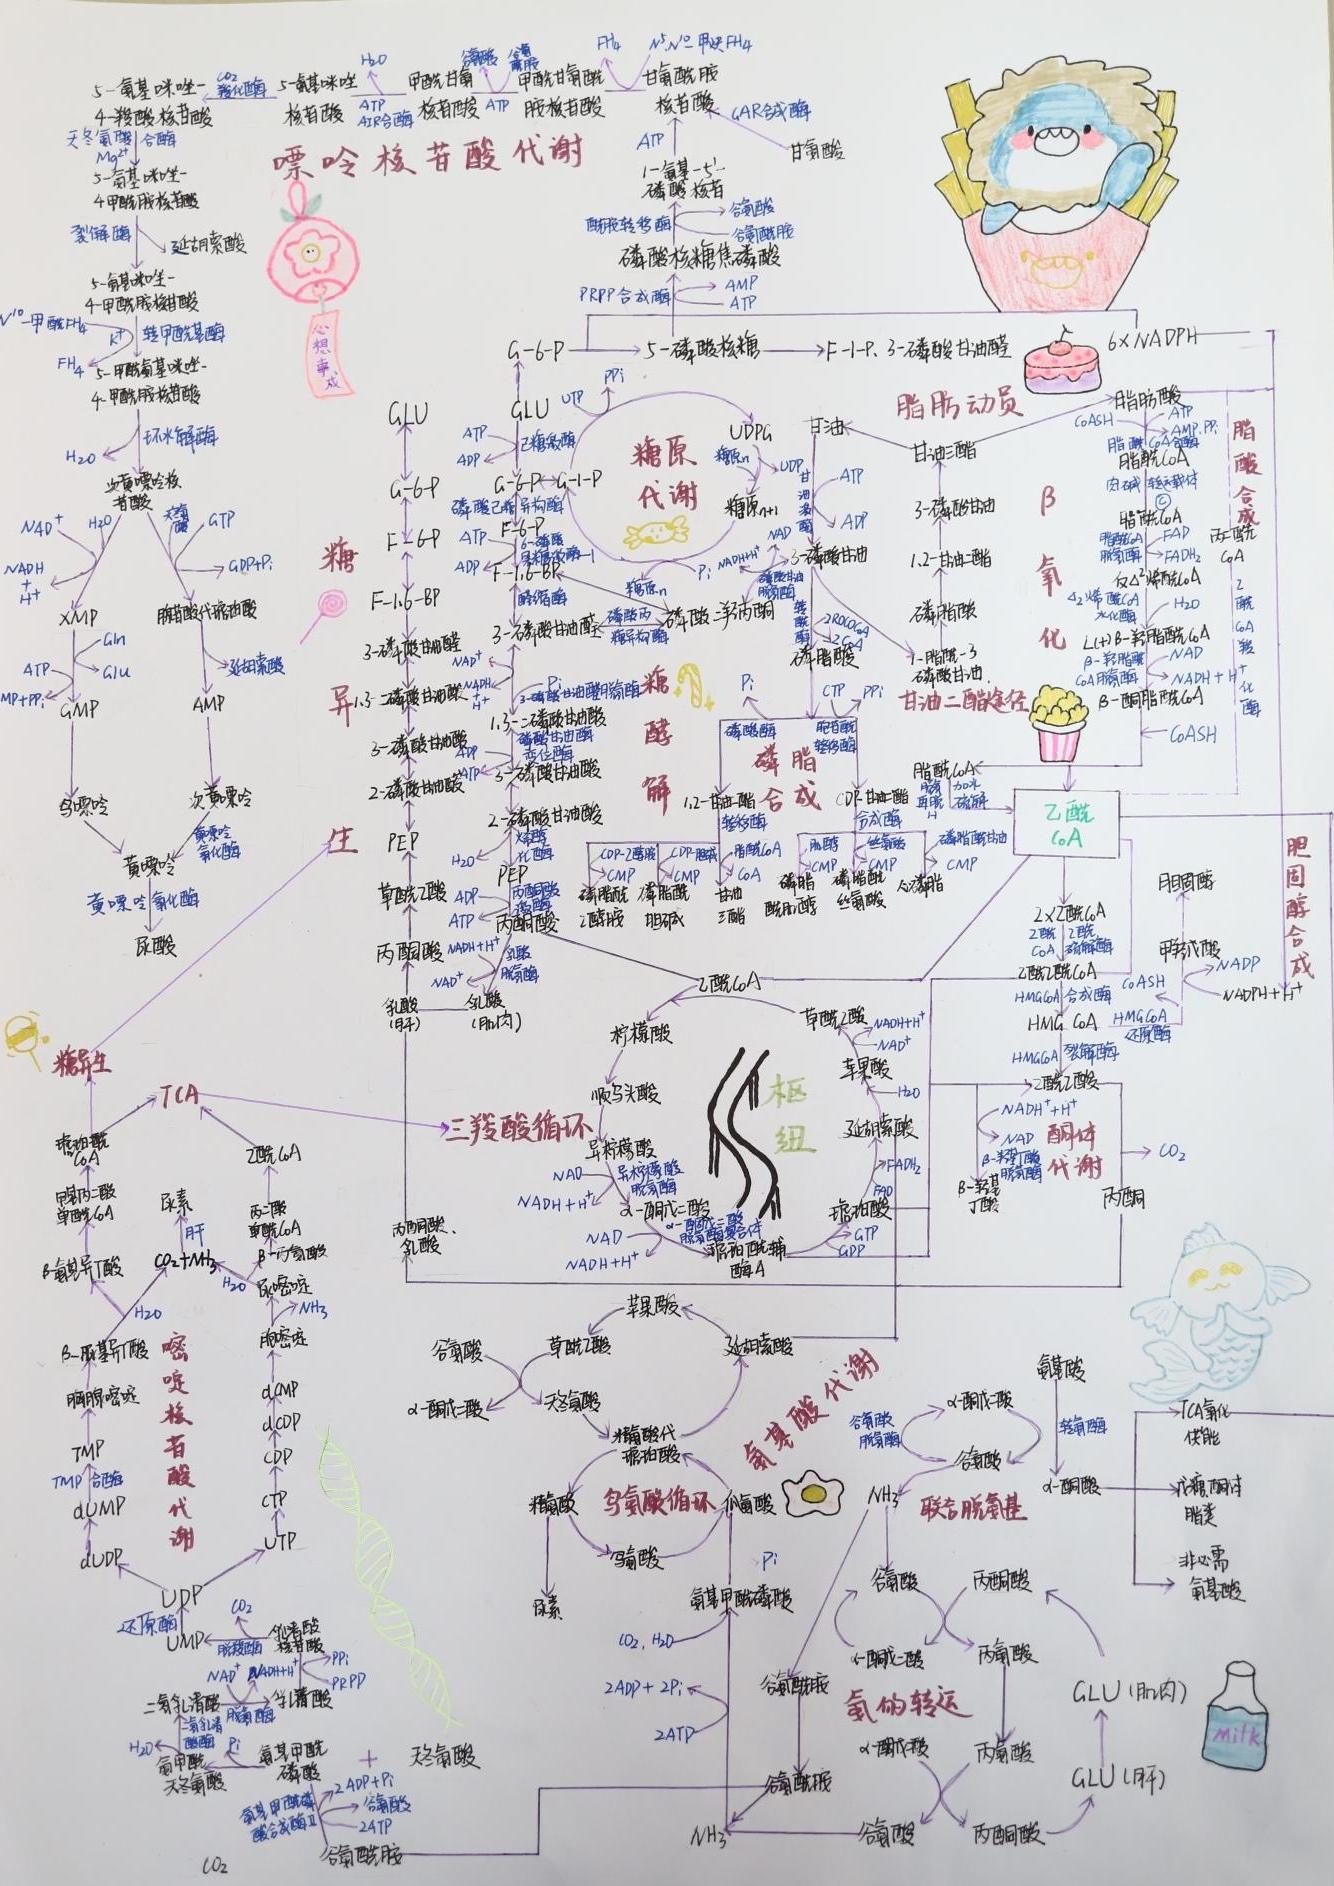 嘌呤核苷酸代谢
5-氨基咪唑-
4-羧酸核苷酸
CO2
羧化酶
5-氨基咪唑
核苷酸
H2O
ATP
AIR合酶
甲酰甘氨
核苷酸
谷氨酸
ATP
甲酰甘氨酰
胺核苷酸
FH4
N5,N10-甲炔FH4
甘氨酰胺
核苷酸
GAR合成酶
ATP
甘氨酸
1-氨基-5'-
磷酸核苷
酰胺转移酶
谷氨酸
谷氨酰胺
磷酸核糖焦磷酸
PRPP合成酶
AMP
ATP
天冬氨酸
合酶
Mg2+
5-氨基咪唑-
4甲酰胺核苷酸
裂解酶
延胡索酸
5-氨基咪唑-
4-甲酰胺核苷酸
N10-甲酰FH4
K+
转甲酰基酶
FH4
5-甲酰氨基咪唑-
4-甲酰胺核苷酸
环水解酶
H2O
次黄嘌呤核
苷酸
NAD+
H2O
GTP
NADH
+
H+
GDP+Pi
XMP
腺苷酸代琥珀酸
Gln
ATP
Glu
MP+PPi
延胡索酸
GMP
AMP
鸟嘌呤
次黄嘌呤
黄嘌呤
氧化酶
黄嘌呤
黄嘌呤氧化酶
尿酸
心想事成
G-6-P
5-磷酸核糖
F-1-P、3-磷酸甘油醛
6×NADPH
糖异生
GLU
G-6-P
F-6-P
F-1.6-BP
3-磷酸甘油醛
1.3-二磷酸甘油酸
3-磷酸甘油酸
2-磷酸甘油酸
PEP
草酰乙酸
丙酮酸
乳酸
(肝)
丙酮酸、
乳酸
糖酵解
GLU
ATP
己糖激酶
ADP
G-6-P
G-1-P
磷酸己糖异构酶
F-6-P
ATP
6-磷酸
果糖激酶-1
ADP
F-1.6-BP
醛缩酶
3-磷酸甘油醛
磷酸丙
糖异构酶
磷酸二羟丙酮
NAD+
Pi
NADH
+
H+
3-磷酸甘油醛脱氢酶
1.3-二磷酸甘油酸
磷酸甘油酸
变位酶
ADP
ATP
3-磷酸甘油酸
2-磷酸甘油酸
烯醇
化酶
H2O
PEP
ADP
丙酮酸
激酶
ATP
丙酮酸
NADH+H+
乳酸
脱氢酶
NAD+
乳酸
(肌肉)
糖原
代谢
UTP
PPi
UDPG
糖原n
UDP
糖原n+1
Pi
糖原n
脂肪动员
甘油
甘油三酯
甘油激酶
ATP
ADP
3-磷酸甘油
NAD
NADH+H+
磷酸甘油
脱氢酶
转酰酶
2ROCOCoA
2CoA
磷脂酸
3-磷酸甘油
1.2-甘油-二酯
磷脂酸
1-脂酰-3
磷酸甘油
甘油二酯途径
磷脂
合成
Pi
磷酸酶
CTP
PPi
胞苷酰
转移酶
1.2-甘油-二酯
转移酶
CDP-甘油二酯
合成酶
CDP-乙醇胺
CMP
磷脂酰
乙醇胺
CDP-胆碱
CMP
磷脂酰
胆碱
脂酰CoA
CoA
甘油
三酯
肌醇
CMP
磷脂
酰肌醇
丝氨酸
CMP
磷脂酰
丝氨酸
磷脂酰甘油
CMP
心磷脂
β氧化
脂肪酸
CoASH
ATP
AMP.PPi
脂酰CoA合成酶
脂酰CoA
肉碱
转运载体
脂酰CoA
脂酰CoA
脱氢酶
FAD
FADH2
反Δ2烯酰CoA
Δ2烯酰CoA
水化酶
H2O
L(+)β-羟脂酰CoA
β-羟脂酰
CoA脱氢酶
NAD
NADH+H+
β-酮脂酰CoA
CoASH
脂酰CoA
加水
硫解
脂酸合成
丙二酰
CoA
乙酰CoA羧化酶
乙酰
CoA
胆固醇合成
2×乙酰CoA
乙酰
CoA
乙酰
硫解酶
乙酰乙酰CoA
HMGCoA合成酶
CoASH
HMG CoA
HMGCoA
还原酶
甲羟戊酸
胆固醇
NADP
NADPH+H+
HMGCoA裂解酶
乙酰乙酸
NADH+H+
NAD
β-羟丁酸
脱氢酶
β-羟基
丁酸
酮体
代谢
CO2
丙酮
三羧酸循环
枢纽
乙酰CoA
柠檬酸
顺乌头酸
异柠檬酸
NAD
异柠檬酸
脱氢酶
NADH+H+
α-酮戊二酸
NAD
α-酮戊二酸
脱氢酶复合体
NADH+H+
琥珀酰辅
酶A
GTP
GDP
琥珀酸
FAD
FADH2
延胡索酸
H2O
苹果酸
NAD+
NADH+H+
草酰乙酸
糖异生
TCA
琥珀酰
CoA
甲基丙二酸
单酰CoA
β氨基异丁酸
H2O
β-脲基异丁酸
胸腺嘧啶
TMP
TMP合酶
dUMP
dUDP
UDP
尿素
肝
CO2+NH3
乙酰CoA
丙二酸
单酰CoA
β-丙氨酸
H2O
尿嘧啶
NH3
胞嘧啶
dCMP
dCDP
CDP
CTP
UTP
嘧啶核苷酸代谢
还原酶
UMP
CO2
脱羧酶
乳清酸
核苷酸
PPi
PRPP
NAD+
NADH+H+
二氢乳清酸
脱氢酶
乳清酸
二氢乳清
酸酶
H2O
氨甲酰
天冬氨酸
Pi
氨基甲酰
磷酸
+
天冬氨酸
2ADP+Pi
谷氨酸
2ATP
氨基甲酰磷
酸合成酶II
谷氨酰胺
CO2
氨基酸代谢
苹果酸
谷氨酸
草酰乙酸
延胡索酸
α-酮戊二酸
天冬氨酸
精氨酸代
琥珀酸
精氨酸
鸟氨酸循环
瓜氨酸
鸟氨酸
尿素
Pi
氨基甲酰磷酸
CO2, H2O
2ADP+2Pi
2ATP
NH3
联合脱氨基
氨基酸
α-酮戊二酸
谷氨酸
脱氢酶
转氨酶
谷氨酸
NH3
α-酮酸
TCA氧化
供能
成糖、酮体
脂类
非必需
氨基酸
氨的转运
谷氨酸
丙酮酸
α-酮戊二酸
丙氨酸
谷氨酰胺
谷氨酰胺
α-酮戊二酸
丙氨酸
谷氨酸
丙酮酸
GLU(肌肉)
GLU(肝)
Milk